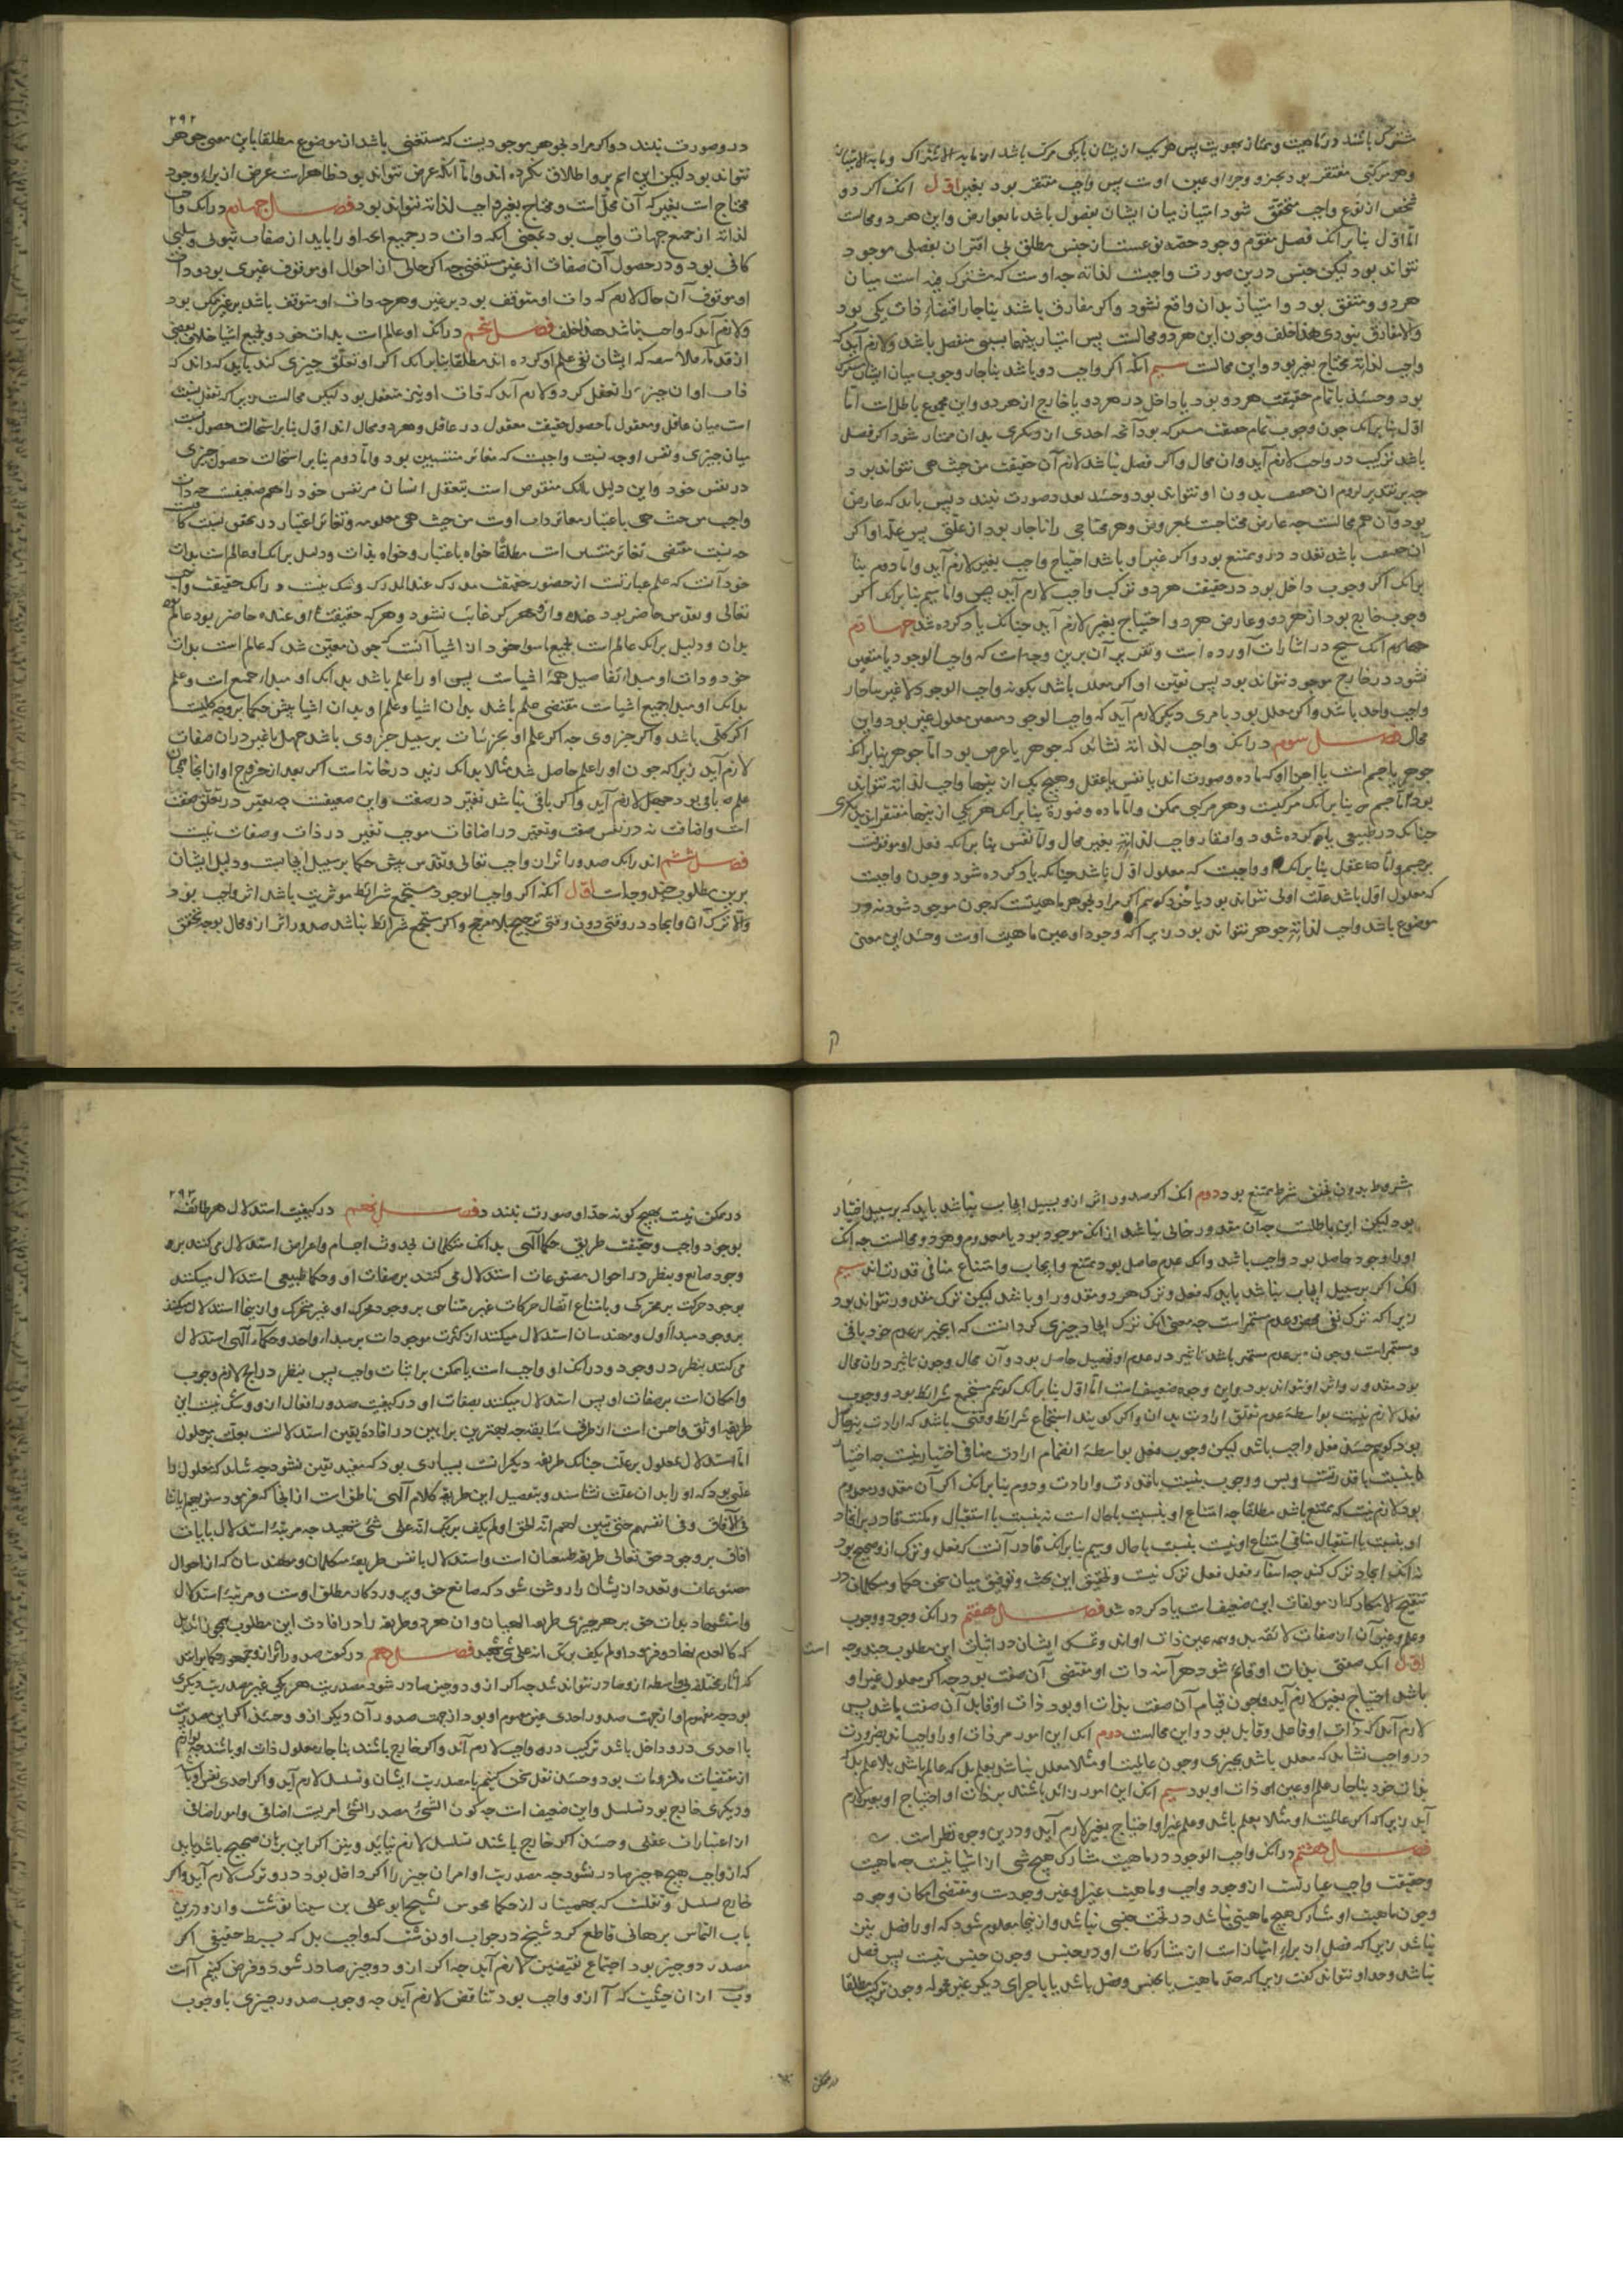 مشترک باشند در ماهیت و ممتاز بهویت پس هر یک از یشان بایکی مرکب باشد از ما به الاشتراک و ما به الامتیاز
وهر مرکبی مفتقر بود بجزو وجزو او عین اوست پس واجب مفتقر بود بغیر اول انک اکر دو
شخص از نوع واجب متحقق شود امتیاز میان ایشان بفصول باشد یا بعوارض واین هر دو محالست
اما اول بنابرانک فصل مقوم وجود حصه نوعست از جنس مطلق بی اقتران بفصلی موجود
نتواند بود لیکن جنس درین صورت واجبست لذاته چه اوست که مشترک فیه است میان
هر دو ومتفق بود وامتیاز بدان واقع نشود واکر مفارق باشند بناچار اقتضاء ذات یکی بود
والا مفارق نبودی هذا خلف وچون این هر دو محالست پس امتیاز بینهما بسببی منفصل باشد ولازم آید که
واجب لذاته محتاج بغیر بود واین محالست سیم آنکه اکر واجب دو باشد بناچار وجوب میان ایشان مشترک
بود وحینئذ یا تمام حقیقت هر دو بود یا داخل در هر دو یا خارج از هر دو واین مجموع باطل است اما
اول بنابرانک چون وجوب تمام حقیقت مشترکه بود آنچه احدی از دیکری بدان ممتاز شود اکر فصل
باشد ترکیب در واجب لازم آید وان محال واکر فصل نباشد لازم آن حقیقت من حیث هی نتواند بود
بود وآن هم محالست چه عارض محتاجست بمعروض وهر محتاجی را ناچار بود از علتی پس علة او اکر
آن حقیقت باشد تعدد درو ممتنع بود واکر غیر او باشد احتیاج واجب بغیر لازم آید واما دوم بنا
برانک اکر وجوب داخل بود در حقیقت هر دو ترکیب واجب لازم آید واما سیم بنابرانک اکر
وجوب خارج بود از هر دو وعارض هر دو احتیاج بغیر لازم آید چنانک یاد کرده شد چهارم
انک شیخ در اشارات آورده است وتقریر آن برین وجه است که واجب الوجود تا متعین
نشود در خارج موجود نتواند بود پس تعین او اکر معلل باشد بکونه واجب الوجود لا غیر بناچار
واجب واحد باشد واکر معلل بود بامری دیکر لازم آید که واجب الوجود متعین معلول غیر بود واین
محال فصل سوم درانک واجب لذاته نشاید که جوهر یا عرض بود اما جوهر بنابرانک
جوهر یا جسم است یا اجزاء او که ماده وصورت اند یا نفس یا عقل وهیچ یک از ینها واجب لذاته نتواند
بود اما جسم بنابرانک مرکبست وهر مرکبی ممکن واما ماده وصورة بنابرانک هر یکی از ینها مفتقر اند بدیکری
چنانک در طبیعی یاد کرده شود وافتقار واجب لذاته بغیر محال واما نفس بنابرانکه فعل او موقوفست
بر جسم واما عقل بنابرانک او واجبست که معلول اول باشد چنانکه یاد کرده شود وچون واجبست
که معلول اول باشد علت اولی نتواند بود یا خود کوییم اکر مراد بجوهر ماهیتست که چون موجود شود نه در
موضوع باشد واجب لذاته جوهر نتواند بود زیرا که وجود او عین ماهیت اوست وحینئذ این معنی
۲۹۲
درو صورت نبندد واکر مراد بجوهر موجودیست که مستغنی باشد از موضوع مطلقا باین معنی جوهر
تواند بود لیکن این اسم برو اطلاق نکرده اند واما آنکه عرض نتواند بود ظاهر است عرض از برای وجود
محتاج است بغیر که آن محل است ومحتاج بغیر واجب لذاته نتواند بود فصل چهارم درانک واجب
لذاته از جمیع جهات واجب بود بمعنی آنکه ذات در جمیع آنچه او را باید از صفات ثبوتی وسلبی
کافی بود ودر حصول آن صفات از غیر مستغنی چه اکر حالی از احوال او موقوف غیری بود وذات
او موقوف آن حال لازم که ذات او متوقف بود بر غیر وهر چه ذات او متوقف باشد بر غیر ممکن بود
ولازم آید که واجب نباشد هذا خلف فصل پنجم درانک او عالم است بذات خود وبجمیع اشیا خلاف بعضی
از قدماء فلاسفه که ایشان نفی علم او کرده اند مطلقا بنابرانک اکر او تعقل چیزی کند باید که داند که
ذات او ان چیز را تعقل کرد ولازم آید که ذات او نیز متعقل بود لیکن محالست زیرا که تعقل نسبت
است میان عاقل ومعقول یا حصول حقیقت معقول در عاقل وهر دو محال اند اول بنابر استحالت حصول نسبت
میان چیزی ونفس او چه نسبت واجبست که مغایر منتسبین بود واما دوم بنابر استحالت حصول چیزی
در نفس خود واین دلیل بانک منقوض است بتعقل انسان مر نفس خود را هم ضعیفست چه ذات
واجب من حیث هی باعتبار مغایر ذات اوست من حیث هی معلومه وتغایر اعتبار در تحقق نسبت کافیست
چه نسبت مقتضی تغایر منتسبین است مطلقا خواه باعتبار وخواه بذات ودلیل برانک او عالم است بذات
خود آنست که علم عبارتست از حضور حقیقت مدرک عند المدرک وشک نیست درانک حقیقت واجب
تعالی وتقدس حاضر بود عنده واز وی هرکز غایب نشود وهر که حقیقت او عنده حاضر بود عالم بود
بدان ودلیل برانک عالم است بجمیع ما سوا خود از اشیا آنست که چون معین شد که عالم است بذات
خود وذات او مبداء تفاصیل همۀ اشیاست پس او را علم باشد بدانک او مبداء جمیع است وعلم
بدانک او مبداء جمیع اشیاست مقتضی علم باشد بدان اشیا وعلم او بدان اشیا پیش حکما بر وجه کلیست
اکر کلی باشد واکر جزوی چه اکر علم او بجزئیات بر سبیل جزوی باشد جهل یا تغیر در ان صفات
لازم آید زیرا که چون او را علم حاصل شد مثلا بدانک زید در خانه است اکر بعد از خروج او از انجا همچنان
علم باقی بود جهل لازم آید واکر باقی نباشد تغیر در صفت واین ضعیفست چه تغیر در تعلق صفت
است واضافت نه در نفس صفت وتغیر در اضافات موجب تغیر در ذات وصفات نیست
فصل ششم اندر انک صدور اثر از واجب تعالی وتقدس پیش حکما بر سبیل ایجابست ودلیل ایشان
برین مطلوب چند وجه است اول آنکه اکر واجب الوجود مستجمع شرائط موثریت باشد اثر واجب بود
والا ترک آن وایجاد در وقتی دون وقتی ترجیح بلا مرجح واکر مستجمع شرائط نباشد صدور اثر ازو محال بود چه تحقق
مشروط بدون تحقق شرط ممتنع بود دوم انک اکر صدور اثر ازو بسبیل ایجاب نباشد باید که بر سبیل اختیار
بود لیکن این باطلست چه آن مقدور خالی نباشد از انک موجود بود یا معدوم وهر دو محالست چه انک
او را وجود حاصل بود واجب باشد وانک عدم حاصل بود ممتنع وایجاب وامتناع منافی قدرت اند سیم
انک اکر بر سبیل ایجاب نباشد باید که فعل وترک هر دو مقدور او باشد لیکن ترک مقدور نتواند بود
زیرا که ترک نفی محض وعدم مستمر است چه معنی انک ترک ایجاد چیزی کرد انست که آن چیز بر عدم خود باقی
ومستمر است وچون بر عدم مستمر باشد تاثیر در عدم او تحصیل حاصل بود وآن محال وچون تاثیر دران محال
بود مقدور واثر او نتواند بود واین وجوه ضعیف است اما اول بنابرانک کوییم مستجمع شرائط بود ووجوب
فعل لازم نیست بواسطه عدم تعلق ارادت بدان واکر کویند استجماع شرائط وقتی باشد که ارادت بنحال
بود کوییم حینئذ فعل واجب باشد لیکن وجوب فعل بواسطۀ انضمام ارادت منافی اختیار نیست چه اختیار
بنسبت با قدرتست وبس ووجوب بنسبت با قدرت وارادت ودوم بنابرانک اکر آن مقدور معدوم
بود لازم نیست که ممتنع باشد مطلقا چه امتناع او بنسبت با حال است نه بنسبت با استقبال ومکنت قادر بر ایجاد
او بنسبت با استقبال منافی امتناع او نیست بنسبت با حال وسیم بنابرانک قادر آنست که فعل وترک ازو صحیح بود
نه انک ایجاد ترک کند چه استمرار فعل فعل ترک نیست وتحقیق این بحث وتوفیق میان سخن حکما ومتکلمان در
تنقیح الافکار که از مولفات این ضعیف است یاد کرده شد فصل هفتم درانک وجود ووجوب
وعلم وغیر آن از صفات لائقه بدو همه عین ذات اواند وتمسک ایشان در اثبات این مطلوب چند وجه است
اول انک صفتی بذات او قائم شود هر آینه ذات او مقتضی آن صفت بود چه اکر معلول غیر او
باشد احتیاج بغیر لازم آید وچون قیام آن صفت بذات او بود ذات او قابل آن صفت باشد پس
لازم آید که ذات او فاعل وقابل بود واین محالست دوم انک این امور مر ذات او را واجب اند بضرورت
در واجب نشاید که معلل باشد بچیزی وچون عالمیت او مثلا معلل نباشد بعلم بل که عالم باشد بلا علم بل که
بذات خود بناچار علم او عین ذات او بود سیم انک این امور زائد باشند بر ذات او احتیاج او بغیر لازم
آید زیرا که اکر عالمیت او مثلا بعلم باشد وعلم غیر او احتیاج بغیر لازم آید ودرین وجوه نظر است
فصل هشتم درانک واجب الوجود در ماهیت مشارک هیچ شی از اشیا نیست چه ماهیت
وحقیقت واجب عبارتست از وجود واجب وماهیت غیر او غیر وجودست ومقتضی امکان وجود
وچون ماهیت او مشارک هیچ ماهیتی نباشد در تحت جنسی نباشد واز ینجا معلوم شود که او را فصل نیز
نباشد زیرا که فصل از برای امتیاز است از مشارکات او در جنس وچون جنس نیست پس فصل
نباشد وحد او نتواند کفت زیرا که حد ماهیت یا بجنس وفصل باشد یا باجزای دیکر غیر محموله وچون ترکیب مطلقا
در ممکن
۲۹۳
در ممکن نیست بهیچ کونه حد او صورت نبندد فصل نهم در کیفیت استدلال هر طائفه
بوجود واجب وحقیقت طریق حکما الهی بدانک متکلمان بحدوث اجسام واعراض استدلال می کنند بر
وجود صانع وبنظر در احوال مصنوعات استدلال می کنند بر صفات او وحکما طبیعی استدلال میکنند
بوجود حرکت بر محرک وبامتناع اتصال حرکات غیر متناهی بر وجود محرک او غیر متحرک واز ینجا استدلال میکنند
بر وجود مبداء اول ومهندسان استدلال میکنند از کثرت موجودات بر مبداء واحد وحکماء الهی استدلال
می کنند بنظر در وجود ودرانک او واجب است یا ممکن بر اثبات واجب پس بنظر در انچه لازم وجوب
وامکان است بر صفات او پس استدلال میکنند بصفات او در کیفیت صدور افعال ازو وشک نیست این
طریقه اوثق واحسن است از طرق سابقه چه بهترین براهین در افاده یقین استدلالست بعلت بر معلول
اما استدلال معلول بر علت چنانک طریقه دیکرانست بسیاری بود که مفید یقین نشود چه شاید که معلول را
علتی بود که او را بدان علت نشناسند وبتفصیل این طریقه کلام الهی ناطق است از انجا که فرمود سنریهم ایاتنا
فی الافاق وفی انفسهم حتی یتبین لهم انه الحق اولم یکف بربک انه علی کل شئ شهید چه مرتبۀ استدلال بایات
افاق بر وجود حق تعالی طریقه طبیعیان است واستدلال بانفس طریقۀ متکلمان ومهندسان که از احوال
مصنوعات وتعدد ان یشان را روشن شود که صانع حق وپروردکار مطلق اوست ومرتبۀ استدلال
واستشهاد بذات حق بر هر چیزی طریقه الهیان وان هر دو طریقه را در افادت این مطلوب هیچ تاثیر
که کالعدم نهاد وفرمود اولم یکف بربک انه علی کل شئ شهید فصل دهم در کیفیت صدور اثر ازو جمهور حکما برانند
که آثار مختلفه بی واسطه ازو صادر نتواند شد چه اکر ازو دو چیز صادر شود مصدریت هر یکی غیر مصدریت دیکری
بود چه مفهوم او از جهت صدور احدی غیر مفهوم او بود از جهت صدور آن دیکر ازو وحینئذ اکر این مصدریت
یا احدی درو داخل باشد ترکیب در واجب لازم آید واکر خارج باشند بناچار معلول ذات او باشند چه لوازم
از مقتضیات ملزومات بود وحینئذ نقل سخن کنیم با مصدریت ایشان وتسلسل لازم آید واکر احدی نفس او باشد
ودیکری خارج بود تسلسل واین ضعیف است چه کون الشئ مصدرا لشئ امریست اضافی وامور اضافی
از اعتبارات عقلی وحینئذ اکر خارج باشند تسلسل لازم نیاید ونیز اکر این برهان صحیح باشد باید
که از واجب هیچ چیز صادر نشود چه مصدریت او امر ان چیز را اکر داخل بود درو ترکب لازم آید واکر
خارج تسلسل ونقلست که بهمنیار از حکما مجوس بشیخ ابو علی بن سینا نوشت وازو درین
باب التماس برهانی قاطع کرد شیخ در جواب او نوشت که واجب بل که بسیط حقیقی اکر
مصدر دو چیز بود اجتماع نقیضین لازم آید چه اکر ازو دو چیز صادر شود وفرض کنیم آ است
وب از ان حیثیت که آ ازو واجب بود تناقض لازم آید چه وجوب صدور چیزی با وجوب